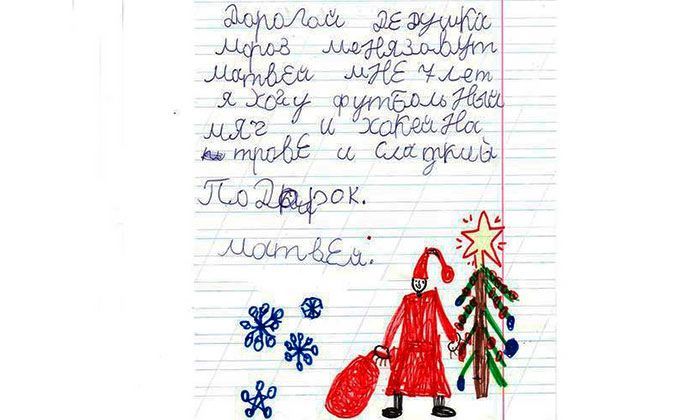 Дорогой Дедушка
мороз меня зовут
матвей мне 7 лет
я хочу футбольный
мяч и хокей на
траве и сладкий
Подарок.
матвей.